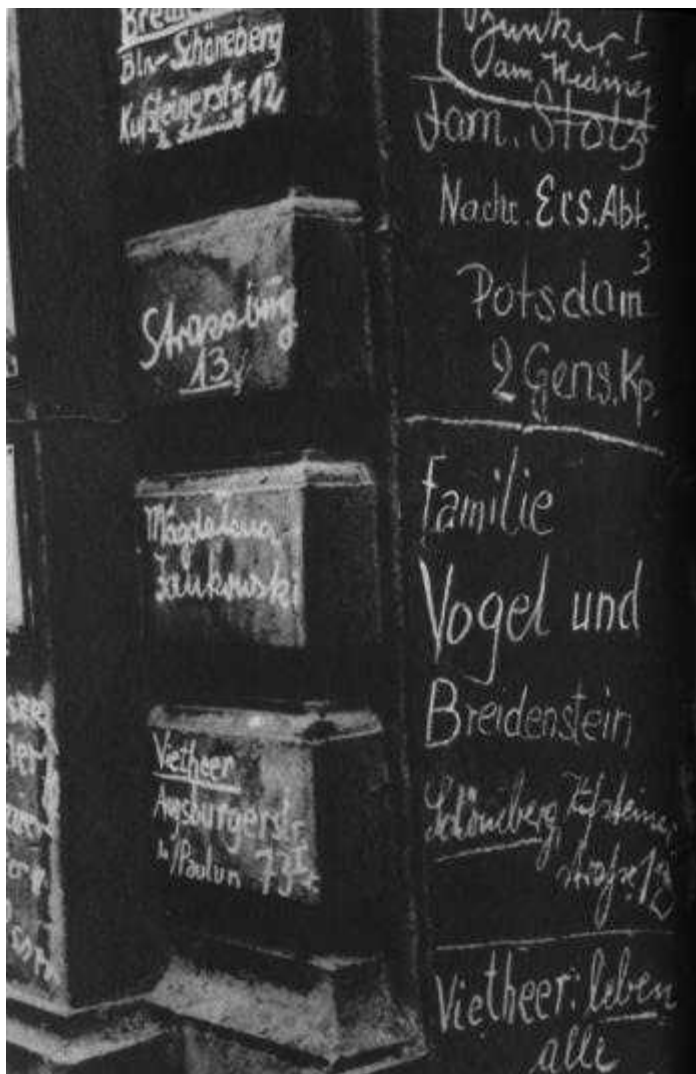 Bln-Schöneberg
Kufsteinerstr. 12
Strassburg
13
Magdalena
Jankowski
Vietheer
Augsburgerstr.
b/Paulun 73
Bunker!
am Weding
Fam. Stolz
Nachr. Ers. Abt.
3
Potsdam
2 Gens. Kp.
Familie
Vogel und
Breidenstein
Schöneberg, Kufsteiner
straße 12
Vietheer: leben
alle